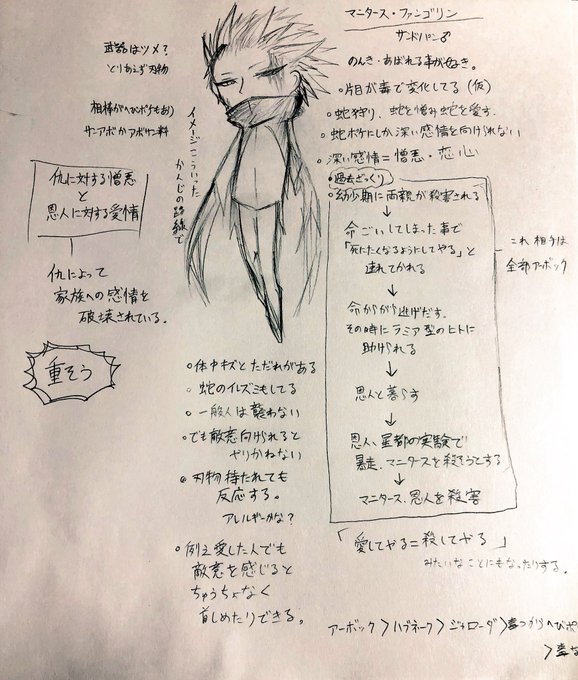 マニタース・ファンゴリン
サンドパン♂
のんき・あばれる事が好き。
武器はツメ？
とりあえず刃物
相棒がへびポケもあり
サンアボかアボサン料
イメージこういった
かんじの路線で
仇に対する憎悪
と
恩人に対する愛情
仇によって
家族への感情を
破壊されている。
重そう
○片目が毒で変化してる（仮）
○蛇狩り、蛇を憎み蛇を愛す。
○蛇ポケにしか深い感情を向けられない
○深い感情＝憎悪・恋心
○過去ざっくり
○幼少期に両親が殺害される
↓
命ごいしてしまった事で
「死にたくなるようにしてやる」と
連れてかれる
↓
命からがら逃げだす。
その時にラミア型のヒトに
助けられる
↓
恩人と暮らす
↓
恩人、星都の実験で
暴走、マニタースを殺そうとする
↓
マニタース、恩人を殺害
これ相手は
全部アーボック
○体中キズとただれがある
○蛇のイレズミもしてる
○一般人は襲わない
○でも敵意向けられると
やりかねない
○刃物持たれても
反応する。
アレルギーかな？
○例え愛した人でも
敵意を感じると
ちゅうちょなく
首しめたりできる。
「愛してやる＝殺してやる」
みたいなことにもなったりする。
アーボック＞ハブネーク＞ジャローダ＞毒つかうへびポ
＞毒な